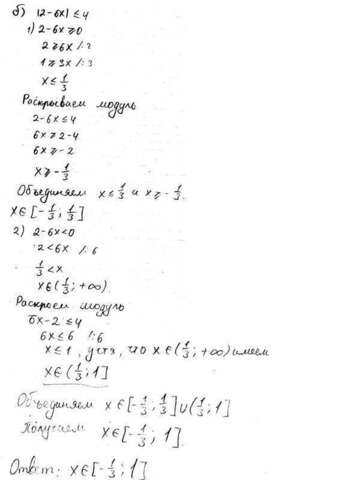 б) |2-6x| ≤ 4
1) 2-6x ≥ 0
2 ≥ 6x /:2
1 ≥ 3x /:3
x ≤ 1/3
Раскрываем модуль
2-6x ≤ 4
6x ≥ 2-4
6x ≥ -2
x ≥ -1/3
Объединяем x ≤ 1/3 и x ≥ -1/3.
x ∈ [-1/3; 1/3]
2) 2-6x < 0
2 < 6x /:6
1/3 < x
x ∈ (1/3; +∞).
Раскроем модуль
6x-2 ≤ 4
6x ≤ 6 /:6
x ≤ 1, учтя, что x ∈ (1/3; +∞) имеем
x ∈ (1/3; 1]
Объединяем x ∈ [-1/3; 1/3] ∪ (1/3; 1]
Получаем x ∈ [-1/3; 1].
Ответ: x ∈ [-1/3; 1]